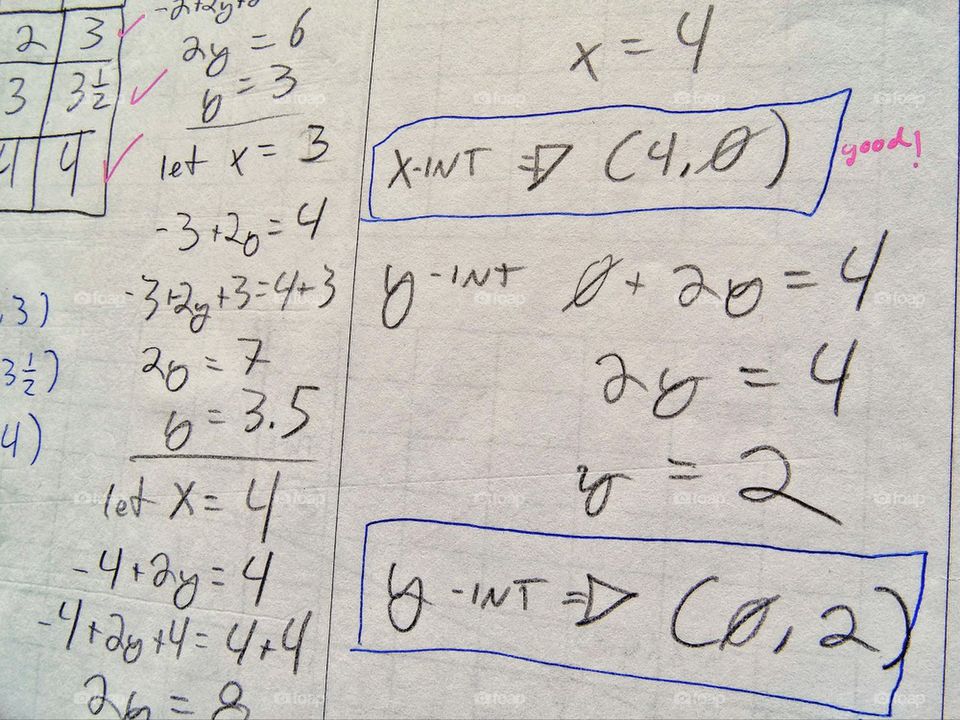 2 3
3 3 1/2
4 4
, 3)
3 1/2)
4)
2y = 6
y = 3
let x = 3
-3+2y = 4
-3+2y+3=4+3
2y = 7
y = 3.5
let x = 4
-4+2y = 4
-4+2y+4 = 4+4
2y = 8
x = 4
x-INT => (4, 0)
good!
y-INT 0 + 2y = 4
2y = 4
y = 2
y-INT => (0, 2)